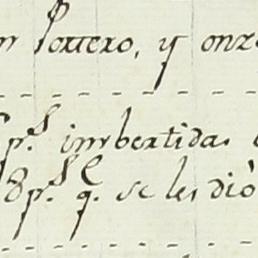 Portero, y onz
p.s imbertidas
8p.s q.e se les diò